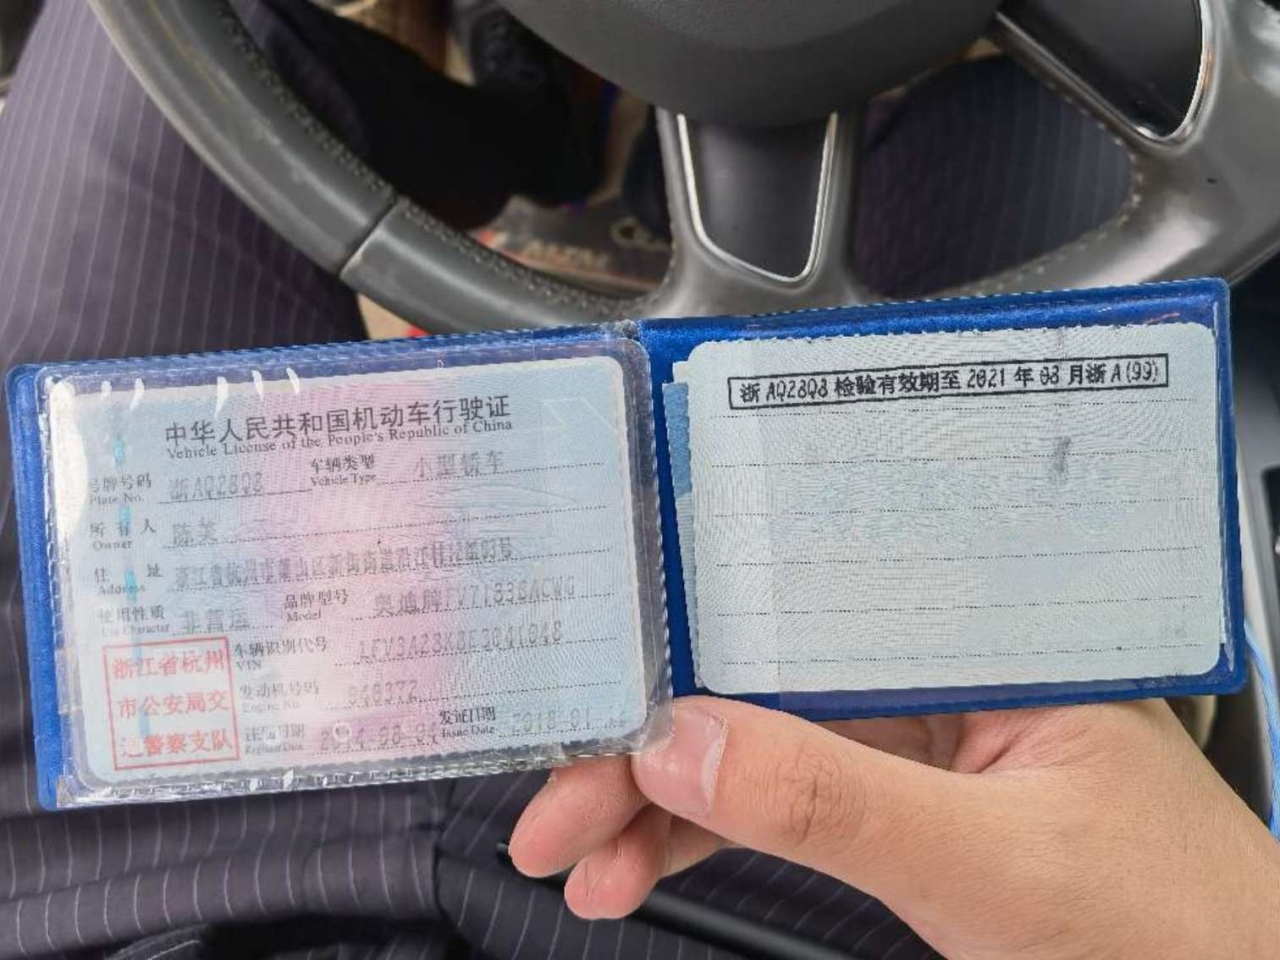 中华人民共和国机动车行驶证
Vehicle License of the People's Republic of China
号牌号码 浙AQ28Q8 车辆类型 小型轿车
Plate No. Vehicle Type
所有人 陈美
Owner
住址 浙江省杭州市萧山区新街街道沿江村12组03号
Address
使用性质 非营运 品牌型号 奥迪牌FV7183BACWG
Use Character Model
浙江省杭州
市公安局交
通警察支队
车辆识别代号
VIN
发动机号码 048372
Engine No.
注册日期 2014-08-04 发证日期 2018-01
Register Date Issue Date
浙AQ28Q8检验有效期至2021年08月浙A(99)